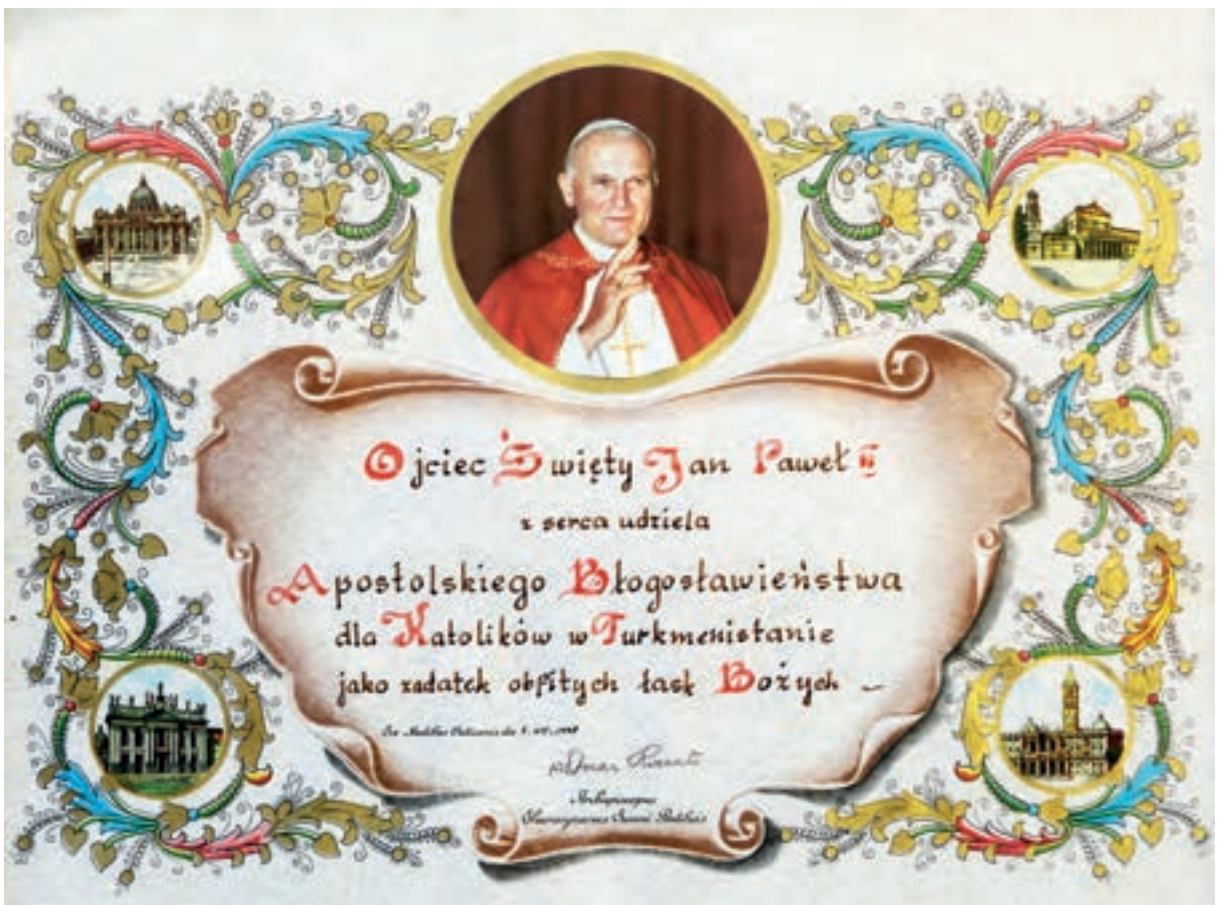 Ojciec Święty Jan Paweł II
z serca udziela
Apostolskiego Błogosławieństwa
dla Katolików w Turkmenistanie
jako zadatek obfitych łask Bożych
Ex Aedibus Vaticanis die